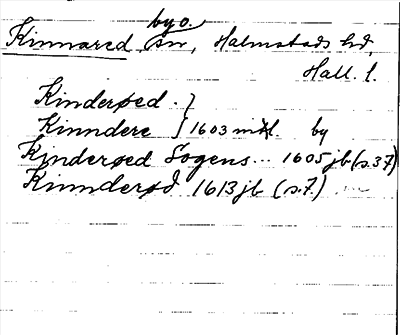 Kinnared by o. sn, Halmstads hd,
Hall. l.
Kinderøed . }
Kinndere } 1603 mtl by
Kjnderøed Sogens... 1605 jb (s.37)
Kinnderød 1613 jb (s.7.)